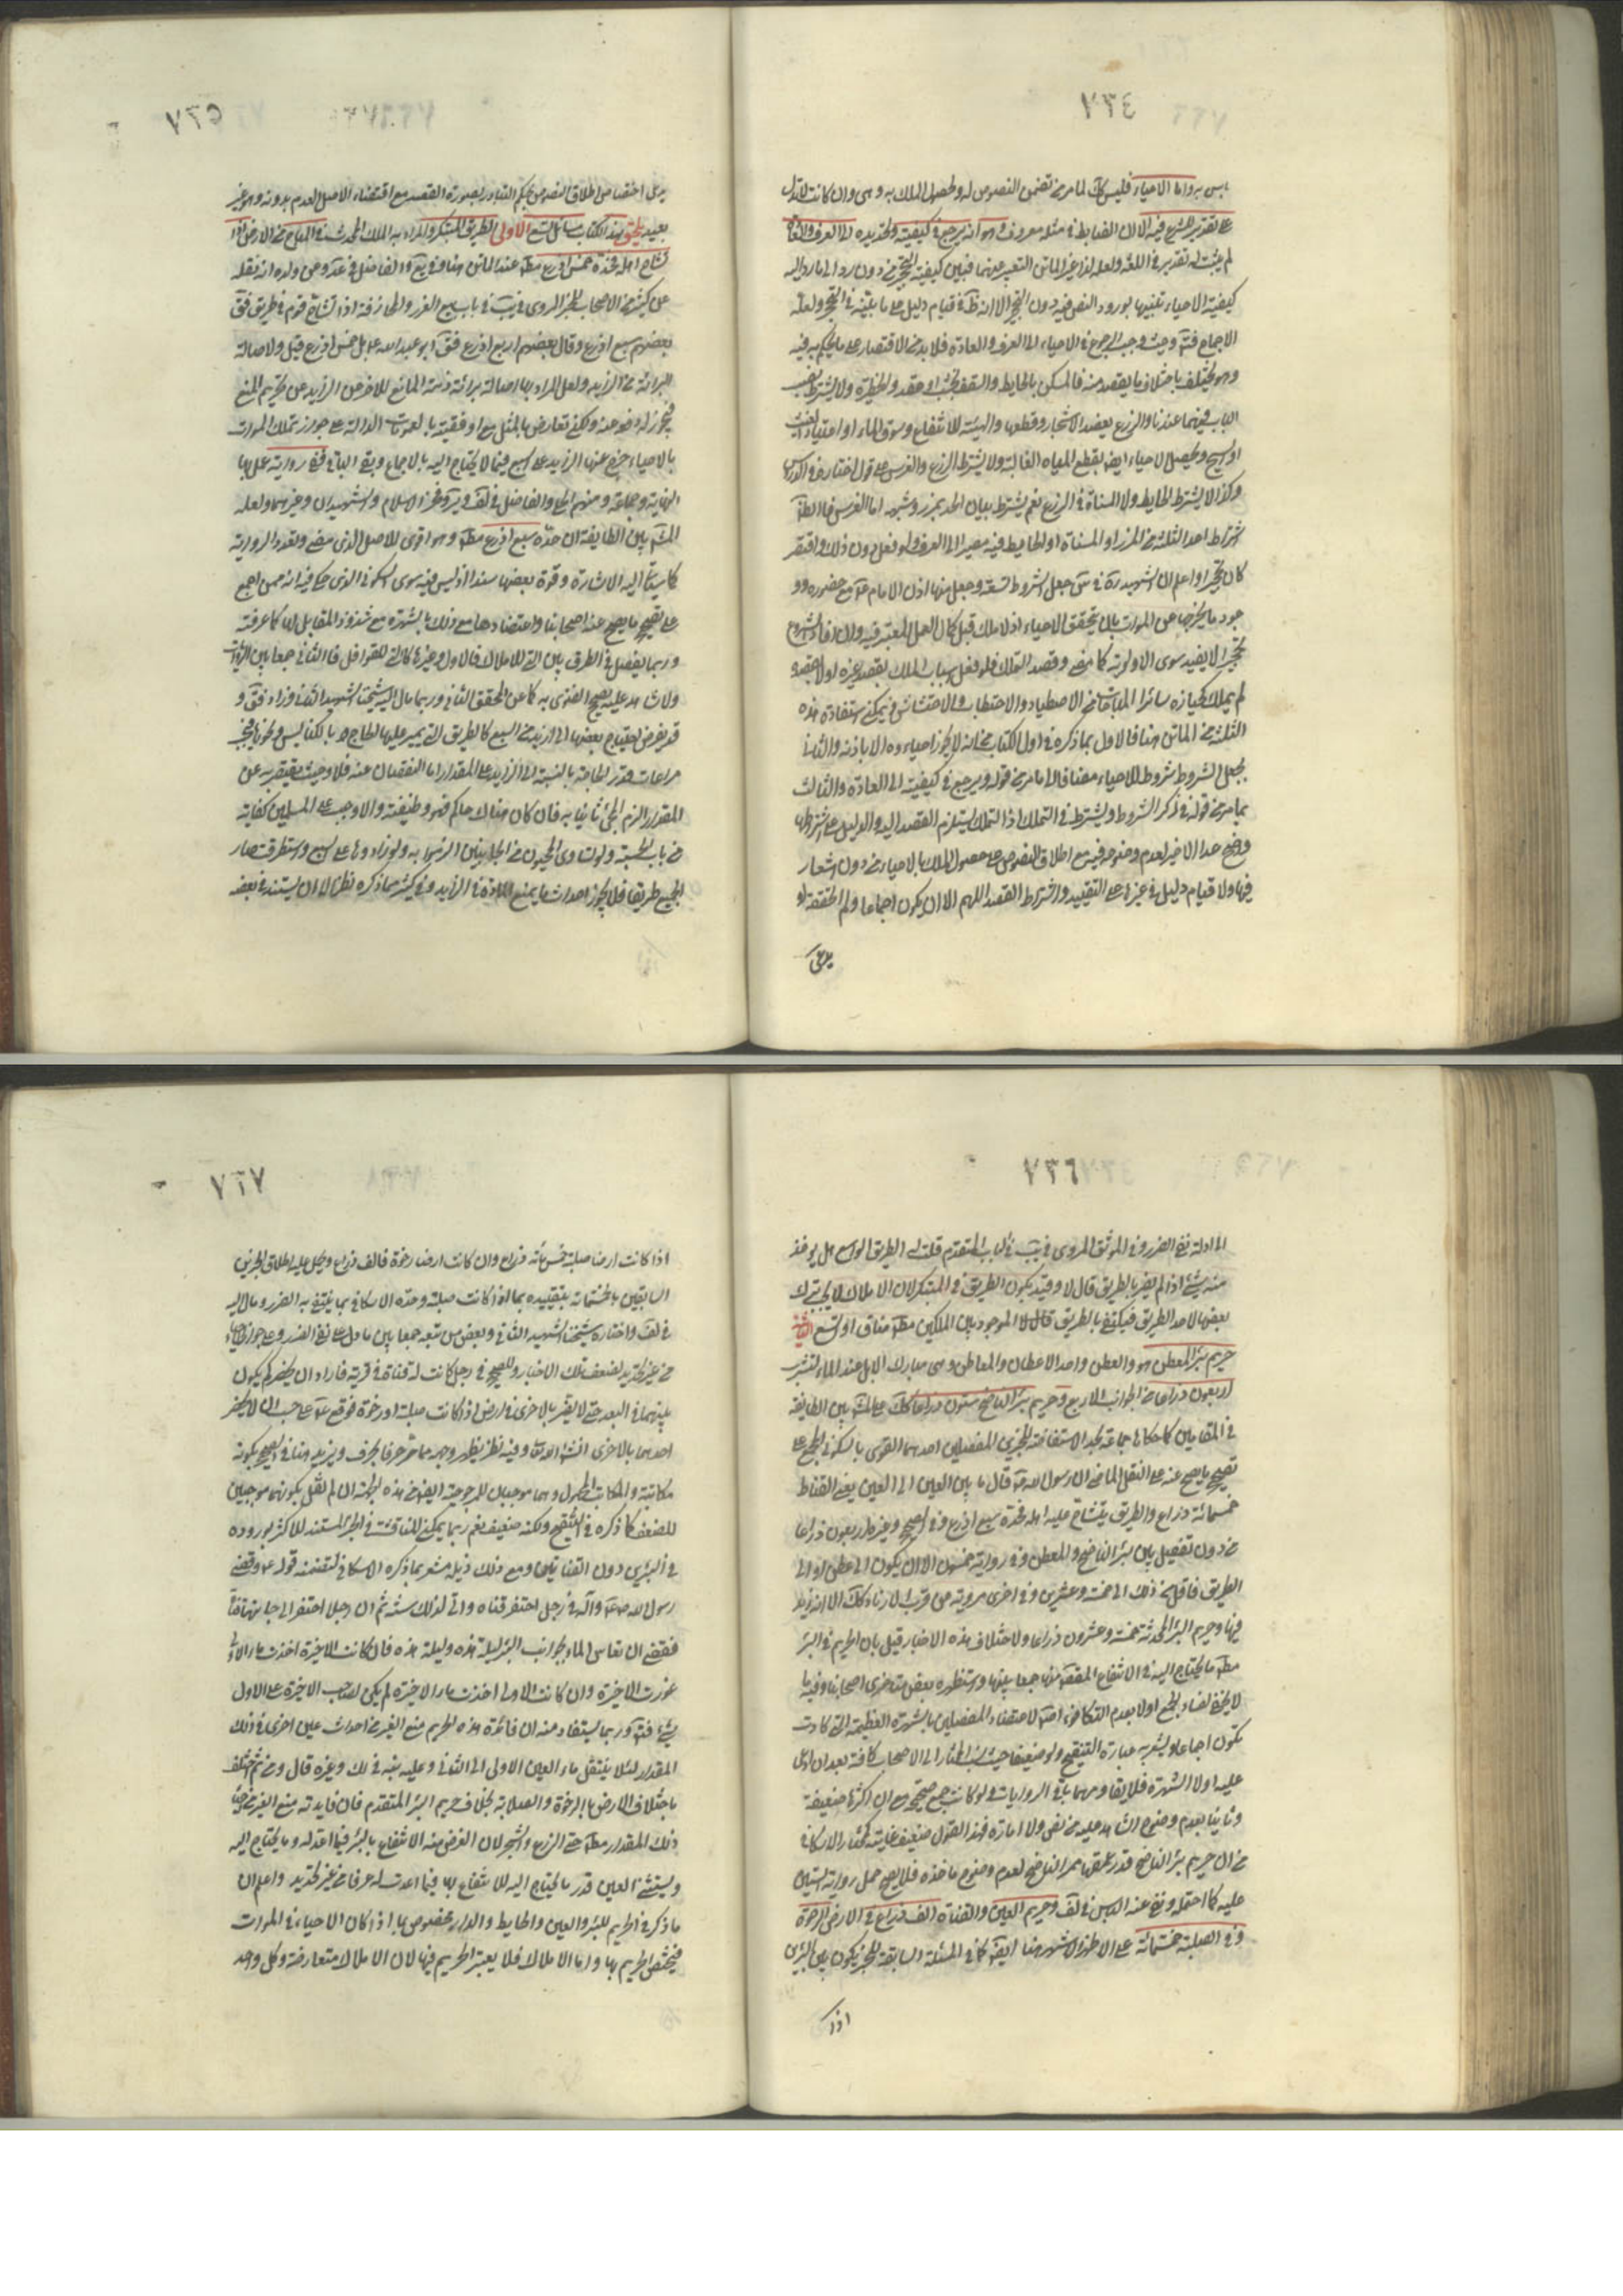 ٧٣٤
باس به واما الاحياء فليس كك لما مر من تضمن النصوص له وحصول الملك به وهي وان كانت لا تدل
على تقدير الشرع فيه الا ان الضابط في مثله معروف وهو انه يرجع في كيفيته وتحديده الى العرف والعادة
لم يثبت له تقدير في اللغة ولعله لذا غير الماتن التعبير عنهما فبين كيفية التحجير من دون رد الى ما رد اليه
كيفية الاحياء تنبيها بورود النص فيه دون التحجير الا انه ظ في قيام دليل على ما بينه في التحجير ولعله
الاجماع فت وحيث وجب الرجوع في الاحياء الى العرف والعادة فلا بد من الاقتصار على ما يحكم به فيه
وهو يختلف باختلاف ما يقصد منه فالمسكن بالحايط والسقف بخشب او عقد والحظيرة ولا يشترط نصب
الباب فيهما عندنا والزرع بعضد الاشجار وقطعها والتهيئة للانتفاع وسوق الماء او اعتياد الغيث
او السيح ويحصل الاحياء ايض بقطع المياه الغالبة ولا يشترط الزرع والغرس على قول اختاره في الدروس
وكذا لا يشترط الحايط ولا المسناة في الزرع نعم يشترط بيان الحد بمرز وشبهه اما الغرس فالظ
اشتراط احد الثلثة من المرز او المسناة او الحايط فيه مصيرا الى العرف ولو فعل دون ذلك واقتصر
كان تحجيرا واعلم ان الشهيد ره في س جعل الشروط تسعة وجعل منها اذن الامام ع مع حضوره وو
جود ما يخرجها عن الموات بان يتحقق الاحياء اذ لا ملك قبل كمال العمل المعتبر فيه وان افاد الشروع
تحجيرا لا يفيد سوى الاولوية كما مضى وقصد التملك فلو فعل اسباب الملك بقصد غيره او لا بقصد
لم يملك كحيازة سائر المباحات من الاصطياد والاحتطاب والاحتشاش ويمكن استفادة هذه
الثلثة من الماتن هنا فالاول بما ذكره في اول الكتاب من انه لا يجوز احياءوه الا باذنه والثاني
بجعل الشروط شروط الاحياء مضافا الى ما مر من قوله ويرجع في كيفيته الى العادة والثالث
بما مر من قوله في ذكر الشروط ويشترط في التملك اذ التملك يستلزم القصد اليه والدليل على اشتراطها
وضح حدا الاخير لعدم وضوحه فيه مع اطلاق النصوص على حصول الملك بالاحياء من دون اشعار
فيها ولا قيام دليل في غيرها على التقييد واشتراط القصد اللهم الا ان يكون اجماعا ولم اتحققه او
يدعى
٧٣٥
يدعى اختصاص اطلاق النصوص بحكم التبادر بصورة القصد مع اقتضاء الاصل العدم بدونه وهو غير
بعيد يلحق بهذا الكتاب مسائل تسع الاولى الطريق المبتكر والمراد به الملك المحدث في المباح من الارض اذا
تشاح اهله فحده خمس اذرع مط عند الماتن هنا وفي يع والفاضل في عد وعن ولده انه نقله
عن كثير من الاصحاب للخبر المروي في يب في باب بيع الغرر والمجازفة اذا تشاح قوم في طريق فق
بعضهم سبع اذرع وقال بعضهم اربع اذرع فق ابو عبد الله ع بل خمس اذرع قيل ولاصالة
البرائة من الزايد ولعل المراد بها اصالة برائة ذمة المانع للاخر من الزايد عن تحريم المنع
فيجوز له وضع منه ولكنه تعارض بالمثل مع اوفقيته بالعمومات الدالة على جواز تملك الموات
بالاحياء خرج عنها الزايد على السبع فيما لا يحتاج اليه بالاجماع وبقى الباقي وفي رواية عمل بها
النهاية وجماعة ومنهم الحلي والفاضل في لف وير وفخر الاسلام والشهيدان وغيرهم ولعله
المش بين الطايفة ان حده سبع اذرع مط وهو اقوى للاصل الذي مضى وتعدد الرواية
كما سيئاتي اليه الاشارة وقوة بعضها سندا اذ ليس فيه سوى السكوني الذي حكي فيه انه ممن اجمع
على تصحيح ما يصح عنه اصحابنا واعتضادها مع ذلك بالشهرة مع شذوذ المقابل لها كما عرفته
وربما يفصل في الطرق بين التي للاملاك فالاول وغيرها كالتي للقوافل فالثاني جمعا بين الروايات
ولا شاهد عليه يصح الفتوى به كما عن المحقق الثاني وربما مال اليه شيخنا الشهيد الثاني وزاد فق و
قد يعرض احتياج بعضها الى ازيد من السبع كالطريق التي يمر عليها الحاج بالكنايس ونحوها فيجب
مراعات قدر الحاجة بالنسبة الى الزايد على المقدار اما النقصان عنه فلا وحيث يقتصر به عن
المقدار الزم المحي ثانيا به فان كان هناك حاكم فهو وظيفته والا وجب على المسلمين كفاية
من باب الحسبة ولو تساوى المحيون من الجانبين الزموا به ولو زادوها على السبع واستطرقت صار
الجميع طريقا فلا يجوز احداث ما يمنع المارة في الزايد وفي كثير مما ذكره نظر الا ان يستند في بعضه
٧٣٦
الى ادلة نفي الضرر وفي الموثق المروي في يب في الباب المتقدم قلت له الطريق الواسع هل يؤخذ
منه شيئ اذا لم يضر بالطريق قال لا وقيد بكون الطريق في المبتكر لان الاملاك لا يجب ترك
بعضها لاحد الطريق فيكتفى بالطريق قال لا الموجود بين الملكين مط ضاق او اتسع الثانية
حريم بئر المعطن وهو العطن واحد الاعطان والمعاطن وهي مبارك الابل عند الماء لتشرب
اربعون ذراعا من الجوانب الاربع وحريم بئر الناضح ستون ذراعا كك على المش بين الطايفة
في المقامين كما حكاه جماعة بحد الاستفاضة للخبرين المفصلين احدهما القوي بالسكوني المجمع على
تصحيح ما يصح عنه على النقل الماضي ان رسول الله ص قال ما بين العين الى العين يعني القناة
خمسمائة ذراع والطريق يتشاح عليه اهله فحده سبع اذرع وفي الصحيح وغيره اربعون ذراعا
من دون تفصيل بين بئر الناضح والمعطن وفي رواية خمسون الا ان يكون الى عطن او الى
الطريق فاقل من ذلك الى خمسة وعشرين وفي اخرى مروية عن قرب الاسناد كك الا انه زيد
فيها وحريم البئر المحدثة خمسة وعشرون ذراعا ولاختلاف هذه الاخبار قيل بان الحريم في البئر
مط ما يحتاج اليه في الانتفاع المقصود منها جمعا بينها واستظهره بعض متاخري اصحابنا وفيه ما
لا يخفى لفساد الجمع اولا بعدم التكافؤ لاعتضاد المفصلين بالشهرة العظيمة التي كادت
تكون اجماعا ويشعر به عبارة التنقيح ولو ضعيفا حيث نسب المختار الى الاصحاب كافة بعد ان ادعى
عليه اولا الشهرة فلا يقاومهما باقي الروايات ولو كانت جميع صحيحة مع ان اكثرها ضعيفة
وثانيا بعدم وضوح الشاهد عليه من نص ولا امارة فهذا القول ضعيف غايته كمختار الاسكافي
من ان حريم بئر الناضح قدر عمقها ممر الناضح لعدم وضوح ماخذه فلا يصح حمل رواية الستين
عليه كما احتمله ونفى عنه الباس في لف وحريم العين والقناة الف ذراع في الارض الرخوة
وفي الصلبة خمسمائة على الاظهر الاشهر هنا ايض كما في المسئلة السابقة للخبر يكون بين البئرين
اذا
٧٣٧
اذا كانت ارضا صلبة خمسمائة ذراع وان كانت ارضا رخوة فالف ذراع وحمل عليه اطلاق الخبرين
السابقين بالخمسمائة بتقييده بما اذا كانت صلبة وحده الاسكافي بما ينتفي به الضرر ومال اليه
في لف واختاره شيخنا الشهيد الثاني وبعض من تبعه جمعا بين ما دل على نفي الضرر وعلى جواز الاحياء
من غير تحديد لضعف تلك الاخبار وللصحيح في رجل كانت له قناة في قرية فاراد ان يحفر كم يكون
بينهما في البعد حتى لا يضر بالاخرى في ارض اذا كانت صلبة او رخوة فوقع ع على حسب ان لا يضر
احدهما بالاخرى انشاء الله تعالى وفيه نظر يظهر وجهه مما مر حرفا بحرف ويزيد هنا في الصحيح بكونه
مكاتبة والمكاتب المجهول وهما موجبان للمرجوحية ايض من هذه الجهة ان لم نقل بكونهما موجبين
للضعف كما ذكره في التنقيح ولكنه ضعيف نعم ربما يمكن المناقشة في الخبر المستند للاكثر بوروده
في البئرين دون القناتين ومع ذلك ذيله مشعر بما ذكره الاسكافي لتضمنه قوله ع وقضى
رسول الله ص واله في رجل احتفر قناة واتى لذلك سنة ثم ان رجلا احتفر الى جانبها قناة
فقضى ان يقاس الماء بجوانب البئر ليلة هذه وليلة هذه فان كانت الاخيرة اخذت ماء الاولى
عورت الاخيرة وان كانت الاولى اخذت ماء الاخيرة لم يكن لصاحب الاخيرة على الاول
شيء فت وربما يستفاد منه ان فائدة هذه الحريم منع الغير من احداث عين اخرى في ذلك
المقدار لئلا ينتقل ماء العين الاولى الى الثاني وعليه نبه في لك وغيره قال ومن ثم اختلف
باختلاف الارض بالرخوة والصلابة بخلاف حريم البئر المتقدم فان فايدته منع الغير من احياء
ذلك المقدار مط حتى الزرع والشجر لان الغرض منه الانتفاع بالبئر فيما اعد له وما يحتاج اليه
ويستثنى للعين قدر ما يحتاج اليه للانتفاع بها فيما اعدت له عرفا من غير تحديد واعلم ان
ما ذكر في الحريم للبئر والعين والحايط والدار مخصوص بما اذا كان الاحياء في الموات
فيختص الحريم بها واما الاملاك فلا يعتبر الحريم فيها لان الاملاك متعارضة وكل واحد